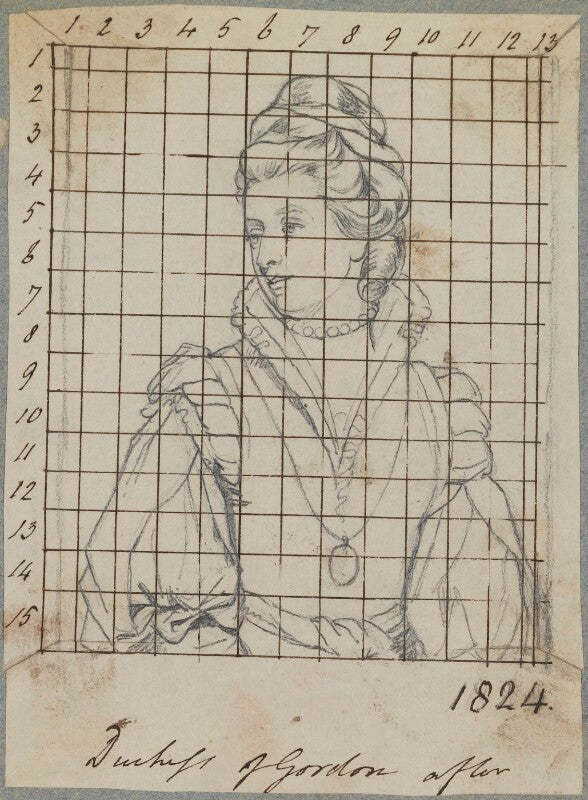 1 2 3 4 5 6 7 8 9 10 11 12 13
1
2
3
4
5
6
7
8
9
10
11
12
13
14
15
1824.
Duchess of Gordon after